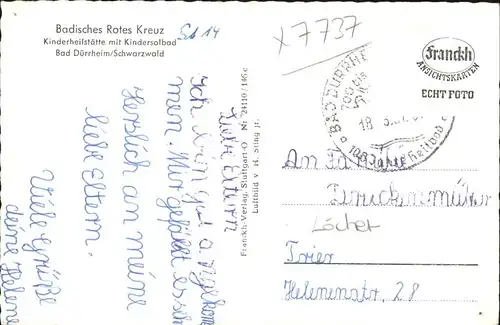 Badisches Rotes Kreuz
Kinderheilstätte mit Kindersolbad
Bad Dürrheim/Schwarzwald
x 7737
Franckh
ANSICHTSKARTEN
ECHT FOTO
BAD DÜRRHE
18
Franckh-Verlag, Stuttgart-O Nr. 24110/146c
Luftbild v. H. Sting jr.
Liebe Eltern
Ich bin gut
men. Mir gefällt es
Herzlich an meine
liebe Eltern.
Viele Grüße
deine Helene
An Familie
Druckenmüller
Löcher
Trier
Helenenstr. 28